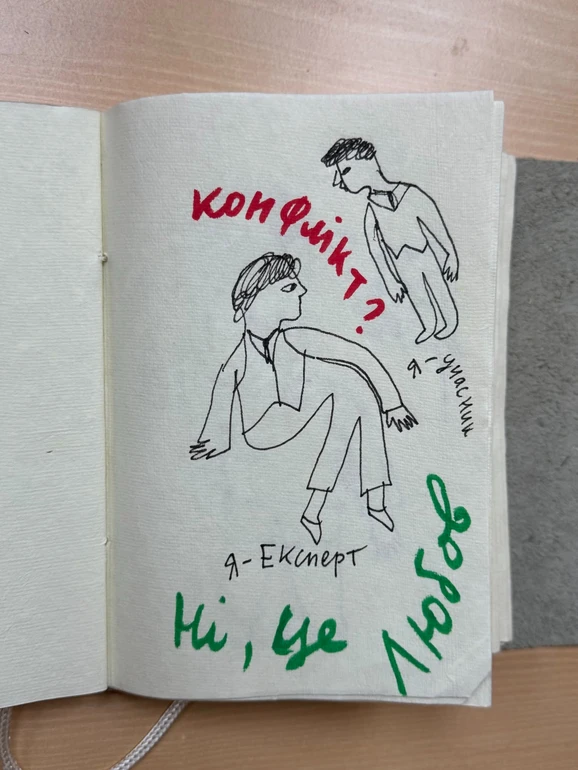 конфлікт?
я-учасник
я-Експерт
Ні, це Любов